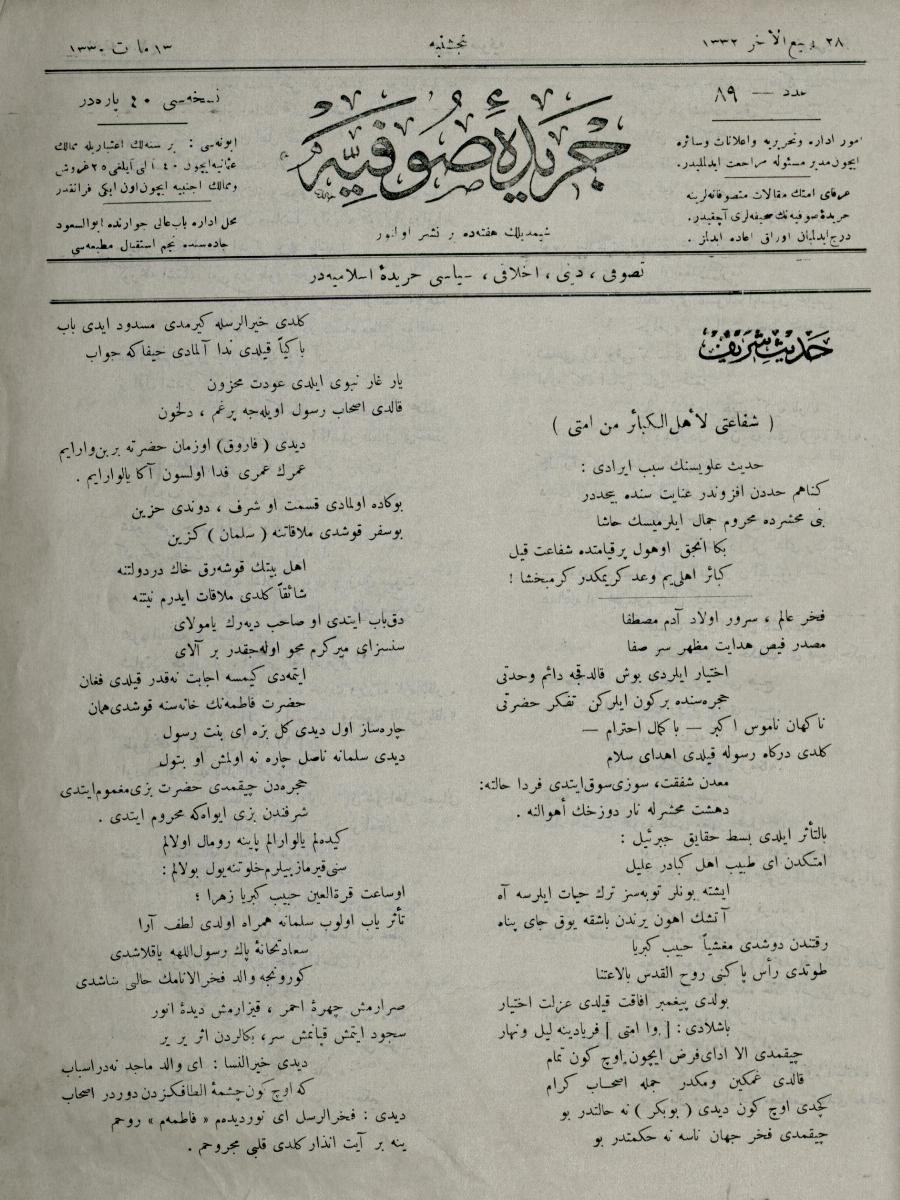 ٢٨ ربيع الآخر ١٣٣٢
پنجشنبه
١٣ مارت ١٣٣٠
عدد — ٨٩
امور اداره و تحريريه و اعلانات و سائره
ايچون مدير مسئوله مراجعت ايدلمليدر.
عرفاى امتك مقالات متصوفانه‌لرينه
جريدۀ صوفيه‌نك صحيفه‌لرى آچيقدر.
درج ايدلميان اوراق اعاده ايدلمز .
جريدۀ صوفيه
شيمديلك هفته‌ده بر نشر اولنور
نسخه‌سى ٤٠ پاره‌در
ابونه‌سى : بر سنه‌لك اعتباريله ممالك
عثمانيه ايچون ٤٠ آلتى آيلغى ٢٥ غروش
وممالك اجنبيه ايچون اون ايكى فرانقدر
محل اداره باب عالى جوارنده ابوالسعود
جاده‌سنده نجم استقبال مطبعه‌سى
تصوفى ، دينى ، اخلاقى ، سياسى جريدۀ اسلاميه‌در
حديث شريف
( شفاعتى لأهل الكبائر من امتى )
حديث علويسنك سبب ايرادى :
كناهم حددن افزوندر عنايت سنده بيحددر
بنى محشرده محروم جمال ايلرميسك حاشا
بكا انجق اوهول پرقيامتده شفاعت قيل
كبائر اهلى‌يم وعد كريمكدر كرمبخشا !
فخر عالم ، سرور اولاد آدم مصطفا
مصدر فيض هدايت مظهر سر صفا
اختيار ايلردى بوش قالدقجه دائم وحدتى
حجره‌سنده بركون ايلركن تفكر حضرتى
ناكهان ناموس اكبر — باكمال احترام —
كلدى دركاه رسوله قيلدى اهداى سلام
معدن شفقت، سوزى سوق ايتدى فردا حالته:
دهشت محشرله نار دوزخك أهوالنه .
بالتأثر ايلدى بسط حقايق جبرئيل :
امتكدن اى طبيب اهل كبادر عليل
ايشته بونلر توبه‌سز ترك حيات ايلرسه آه
آتشك اهون يرندن باشقه يوق جاى پناه
رقتندن دوشدى مغشياً حبيب كبريا
طوتدى رأس پاكنى روح القدس بالاعتنا
بولدى پيغمبر افاقت قيلدى عزلت اختيار
باشلادى : [ وا امتى ] فريادينه ليل ونهار
چيقمدى الا اداى فرض ايچون اوچ كون تمام
قالدى غمكين ومكدر جمله اصحاب كرام
كچدى اوچ كون ديدى ( بوبكر ) نه حالتدر بو
چيقمدى فخر جهان ناسه نه حكمتدر بو
كلدى خيرالرسله كيرمدى مسدود ايدى باب
باكياً قيلدى ندا آلمادى حيفاكه جواب
يار غار نبوى ايلدى عودت محزون
قالدى اصحاب رسول اويله‌جه پرغم ، دلخون
ديدى (فاروق) اوزمان حضرته بر بن وارايم
عمرك عمرى فدا اولسون آكا يالوارايم .
بوكاده اولمادى قسمت او شرف ، دوندى حزين
بوسفر قوشدى ملاقاتنه ( سلمان ) كزين
اهل بيتك قوشه‌رق خاك دردولتنه
شائقاً كلدى ملاقات ايدرم نيتنه
دق باب ايتدى او صاحب ديه‌رك يامولاى
سنسزاى ميركرم محو اوله‌جقدر بر آلاى
ايتمه‌دى كيمسه اجابت نه‌قدر قيلدى فغان
حضرت فاطمه‌نك خانه‌سنه قوشدى همان
چاره‌ساز اول ديدى كل بزه اى بنت رسول
ديدى سلمانه ناصل چاره نه اولمش او بتول
حجره‌دن چيقمدى حضرت بزى مغموم ايتدى
شرفندن بزى ايواه‌كه محروم ايتدى .
كيده‌لم يالوارالم پاينه رومال اولالم
سنى قيرماز بيلرم خلوتنه يول بولالم :
اوساعت قرة العين حبيب كبريا زهرا ؛
تأثر ياب اولوب سلمانه همراه اولدى لطف آرا
سعادتخانۀ پاك رسول‌اللهه ياقلاشدى
كورونجه والد فخرالانامك حالى شاشدى
صرارمش چهرۀ احمر ، قيزارمش ديدۀ انور
سجود ايتمش قپانمش سر، بكالردن اثر ير ير
ديدى خيرالنسا : اى والد ماجد نه‌در اسباب
كه اوچ كون چشمۀ الطافكزدن دوردر اصحاب
ديدى : فخرالرسل اى نورديده‌م « فاطمه‌م » روحم
ينه بر آيت انذار كلدى قلبى مجروحم .